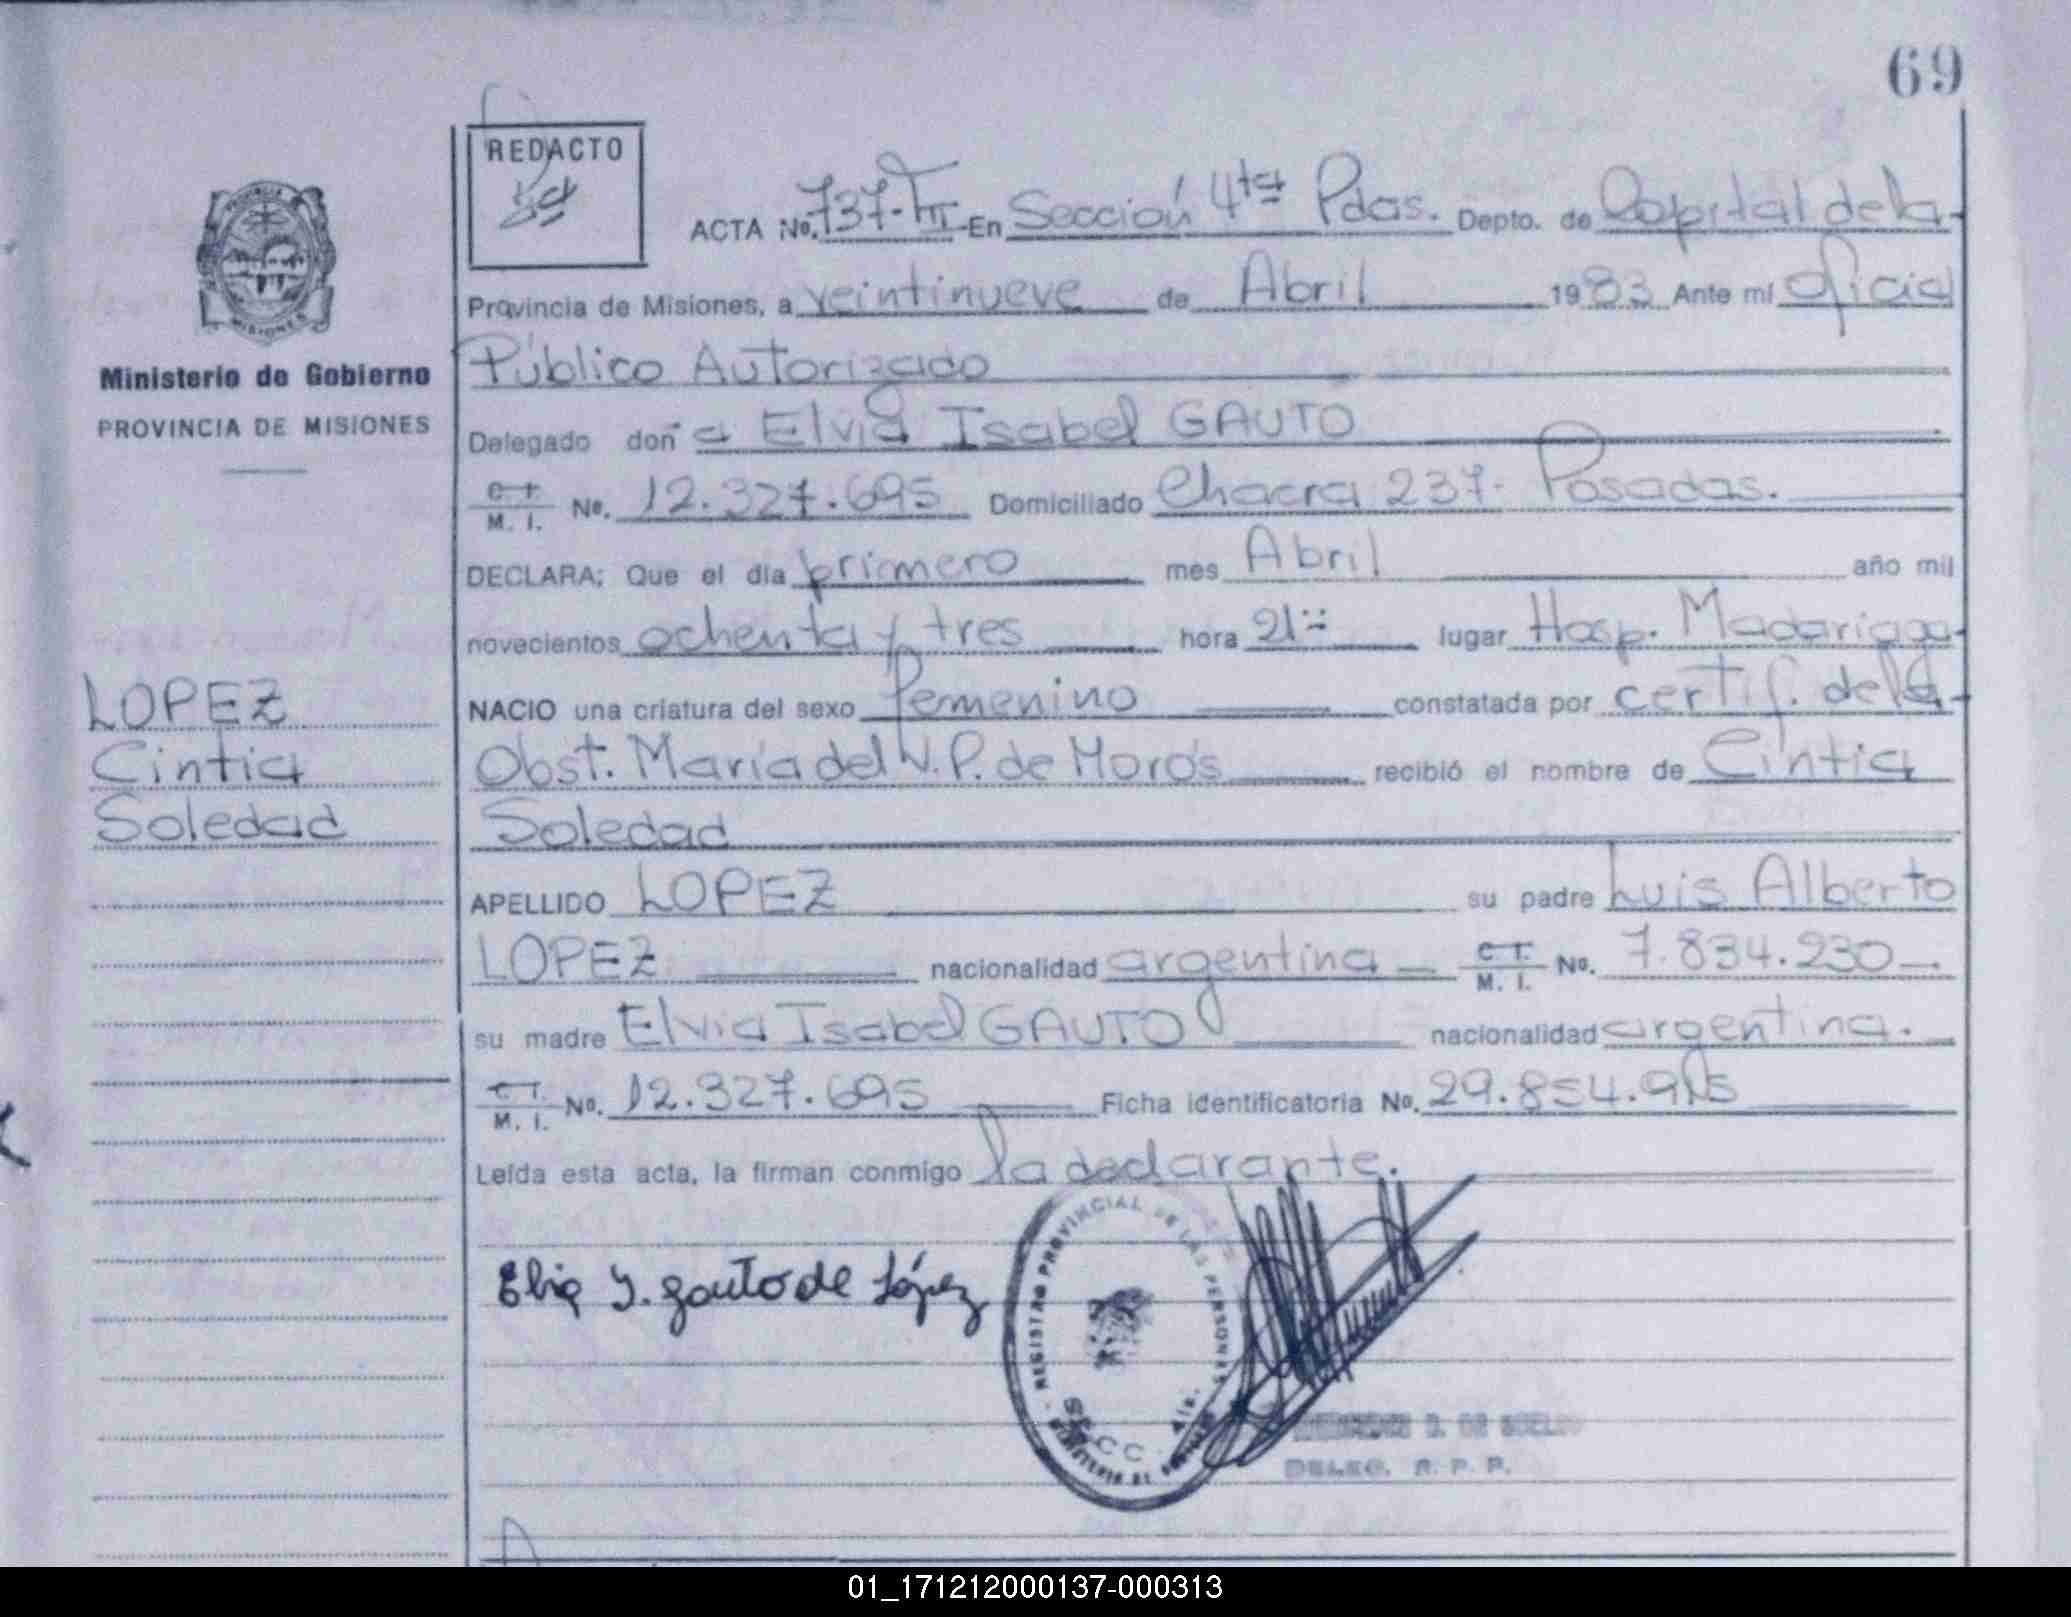 69
REDACTO
ACTA No. 737-TIII-En Sección 4ta Pdas. Depto. de Capital de la-
Provincia de Misiones, a veintinueve de Abril 1983 Ante mí Oficial
Público Autorizado
Delegado doña Elvia Isabel GAUTO
C. I. M. I. No. 12.327.695 Domiciliado Chacra 237- Posadas.
DECLARA; Que el día primero mes Abril año mil
novecientos ochenta y tres hora 21:- lugar Hosp. Madariaga-
NACIO una criatura del sexo femenino constatada por certif. de la-
Obst. María del V.P. de Horos recibió el nombre de Cintia
Soledad
APELLIDO LOPEZ su padre Luis Alberto
LOPEZ nacionalidad argentina C. I. M. I. No. 7.834.230-
su madre Elvia Isabel GAUTO nacionalidad argentina.
C. I. M. I. No. 12.327.695 Ficha identificatoria No. 29.854.915
Leída esta acta, la firman conmigo la declarante.
Elvia Y. gauto de López
REGISTRO PROVINCIAL DE LAS PERSONAS
SECC. 4ta.
D. DE
DELEG. R. P. P.
PROVINCIA
MISIONES
Ministerio de Gobierno
PROVINCIA DE MISIONES
LOPEZ
Cintia
Soledad
01_171212000137-000313